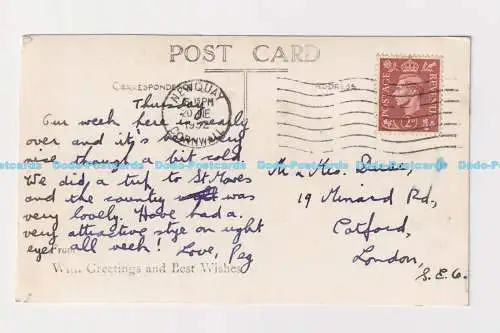 POST CARD
CORRESPONDENCE
ADDRESS
NEWQUAY
PM
20 JE
1952
CORNWALL
POSTAGE
REVENUE
Thursday
Our week here is nearly
over and it's been very
nice though a bit cold
We did a trip to St. Mawes
and the country was
very lovely. Have had a
very attractive stye on right
eye all week! Love, Peg
From
With Greetings and Best Wishes
Mr & Mrs.
19 Minard Rd.,
Catford,
London,
S.E.6.
Dodo-Postcards Dodo-Postcards Dodo-Postcards Dodo-Postcards